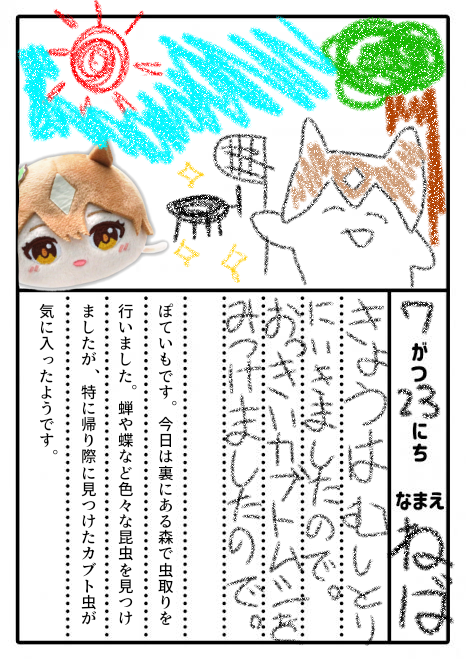 7がつ23にち なまえ ねば
きょうはむしとり
にいきましたので。
おっきいカブトムシを
みつけましたので。
ぽていもです。今日は裏にある森で虫取りを
行いました。蝉や蝶など色々な昆虫を見つけ
ましたが、特に帰り際に見つけたカブト虫が
気に入ったようです。